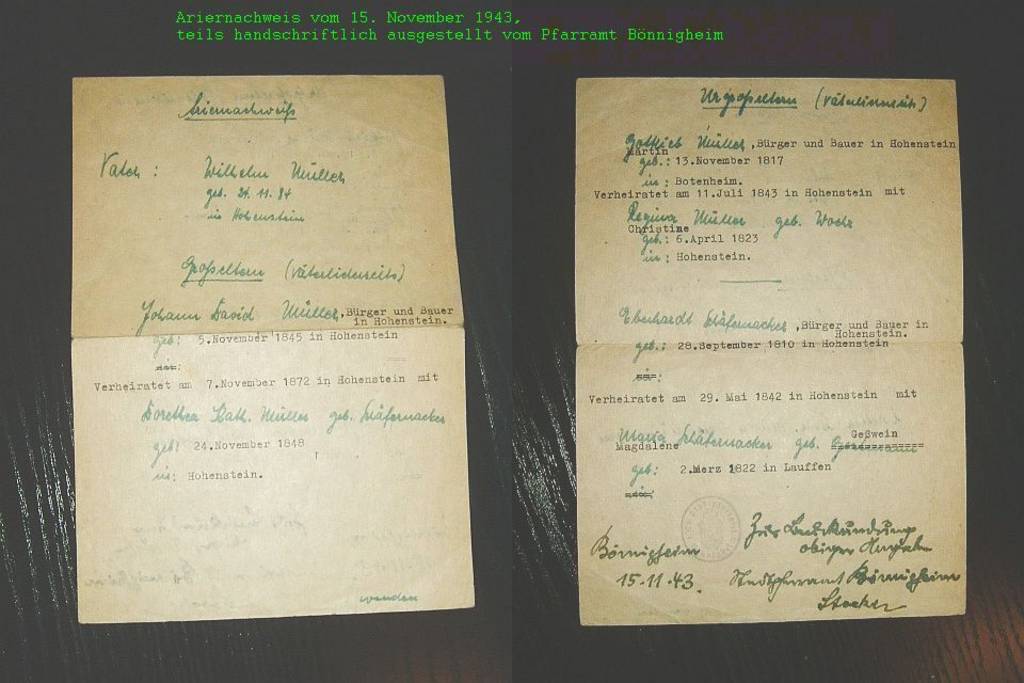 Ariernachweis vom 15. November 1943,
teils handschriftlich ausgestellt vom Pfarramt Bönnigheim
Ariernachweiß
Vater : Wilhelm Müller
geb. 24.11.84
in Hohenstein
Großeltern (väterlicherseits)
Johann David Müller, Bürger und Bauer
in Hohenstein.
geb: 5.November 1845 in Hohenstein
in:
Verheiratet am 7.November 1872 in Hohenstein mit
Dorothea Kath. Müller geb. Schäfernacker
geb: 24.November 1848
in: Hohenstein.
wenden
Urgroßeltern (väterlicherseits)
Gottlieb Müller, Bürger und Bauer in Hohenstein
Martin
geb.: 13.November 1817
in: Botenheim.
Verheiratet am 11.Juli 1843 in Hohenstein mit
Regina Müller geb.
Christine
geb.: 6.April 1823
in: Hohenstein.
Eberhardt Schäfernacker, Bürger und Bauer in
Hohenstein.
geb.: 28.September 1810 in Hohenstein
in:
Verheiratet am 29. Mai 1842 in Hohenstein mit
Geßwein
Maria Schäfernacker geb.
Magdalene
geb: 2.Merz 1822 in Lauffen
in:
Bönnigheim
15.11.43.
Zur Beurkundung
obiger Angaben
Stadtpfarramt Bönnigheim